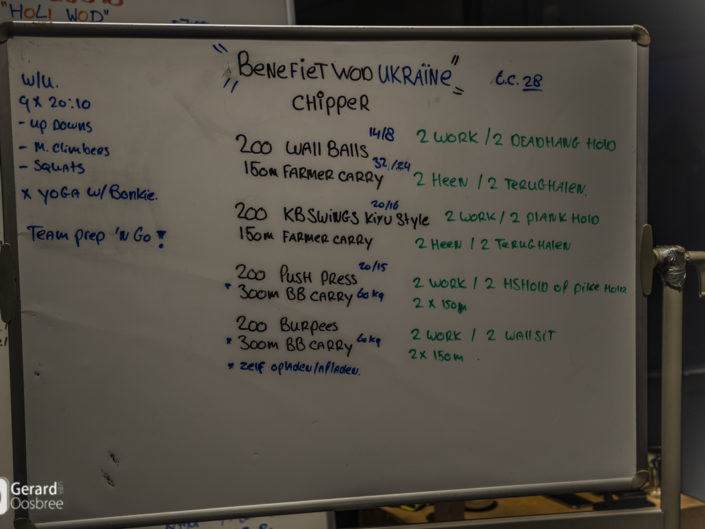 "HOLI WOD"
"BENEFIET WOD UKRAÏNE" t.c. 28
CHIPPER
W/U.
9 X 20:10
- UP DOWNS
- M. Climbers
- SQUATS
x YOGA W/ Bonkie.
TEAM prep 'N GO !
200 WALL BALLS 14/8 2 WORK / 2 DEADHANG HOLD
150m FARMER CARRY 32/24 2 HEEN / 2 TERUGHALEN.
200 KB SWINGS Kiyu Style 20/16 2 WORK / 2 PLANK HOLD
150m FARMER CARRY 2 HEEN / 2 TERUGHALEN
200 PUSH PRESS 20/15 2 WORK / 2 HSHOLD of PIKE HOLD
* 300m BB CARRY 60kg 2 X 150m
200 BURPEES 2 WORK / 2 WALL SIT
* 300m BB CARRY 60kg 2X 150m.
* zelf opladen/afladen.
Gerard van
Oosbree